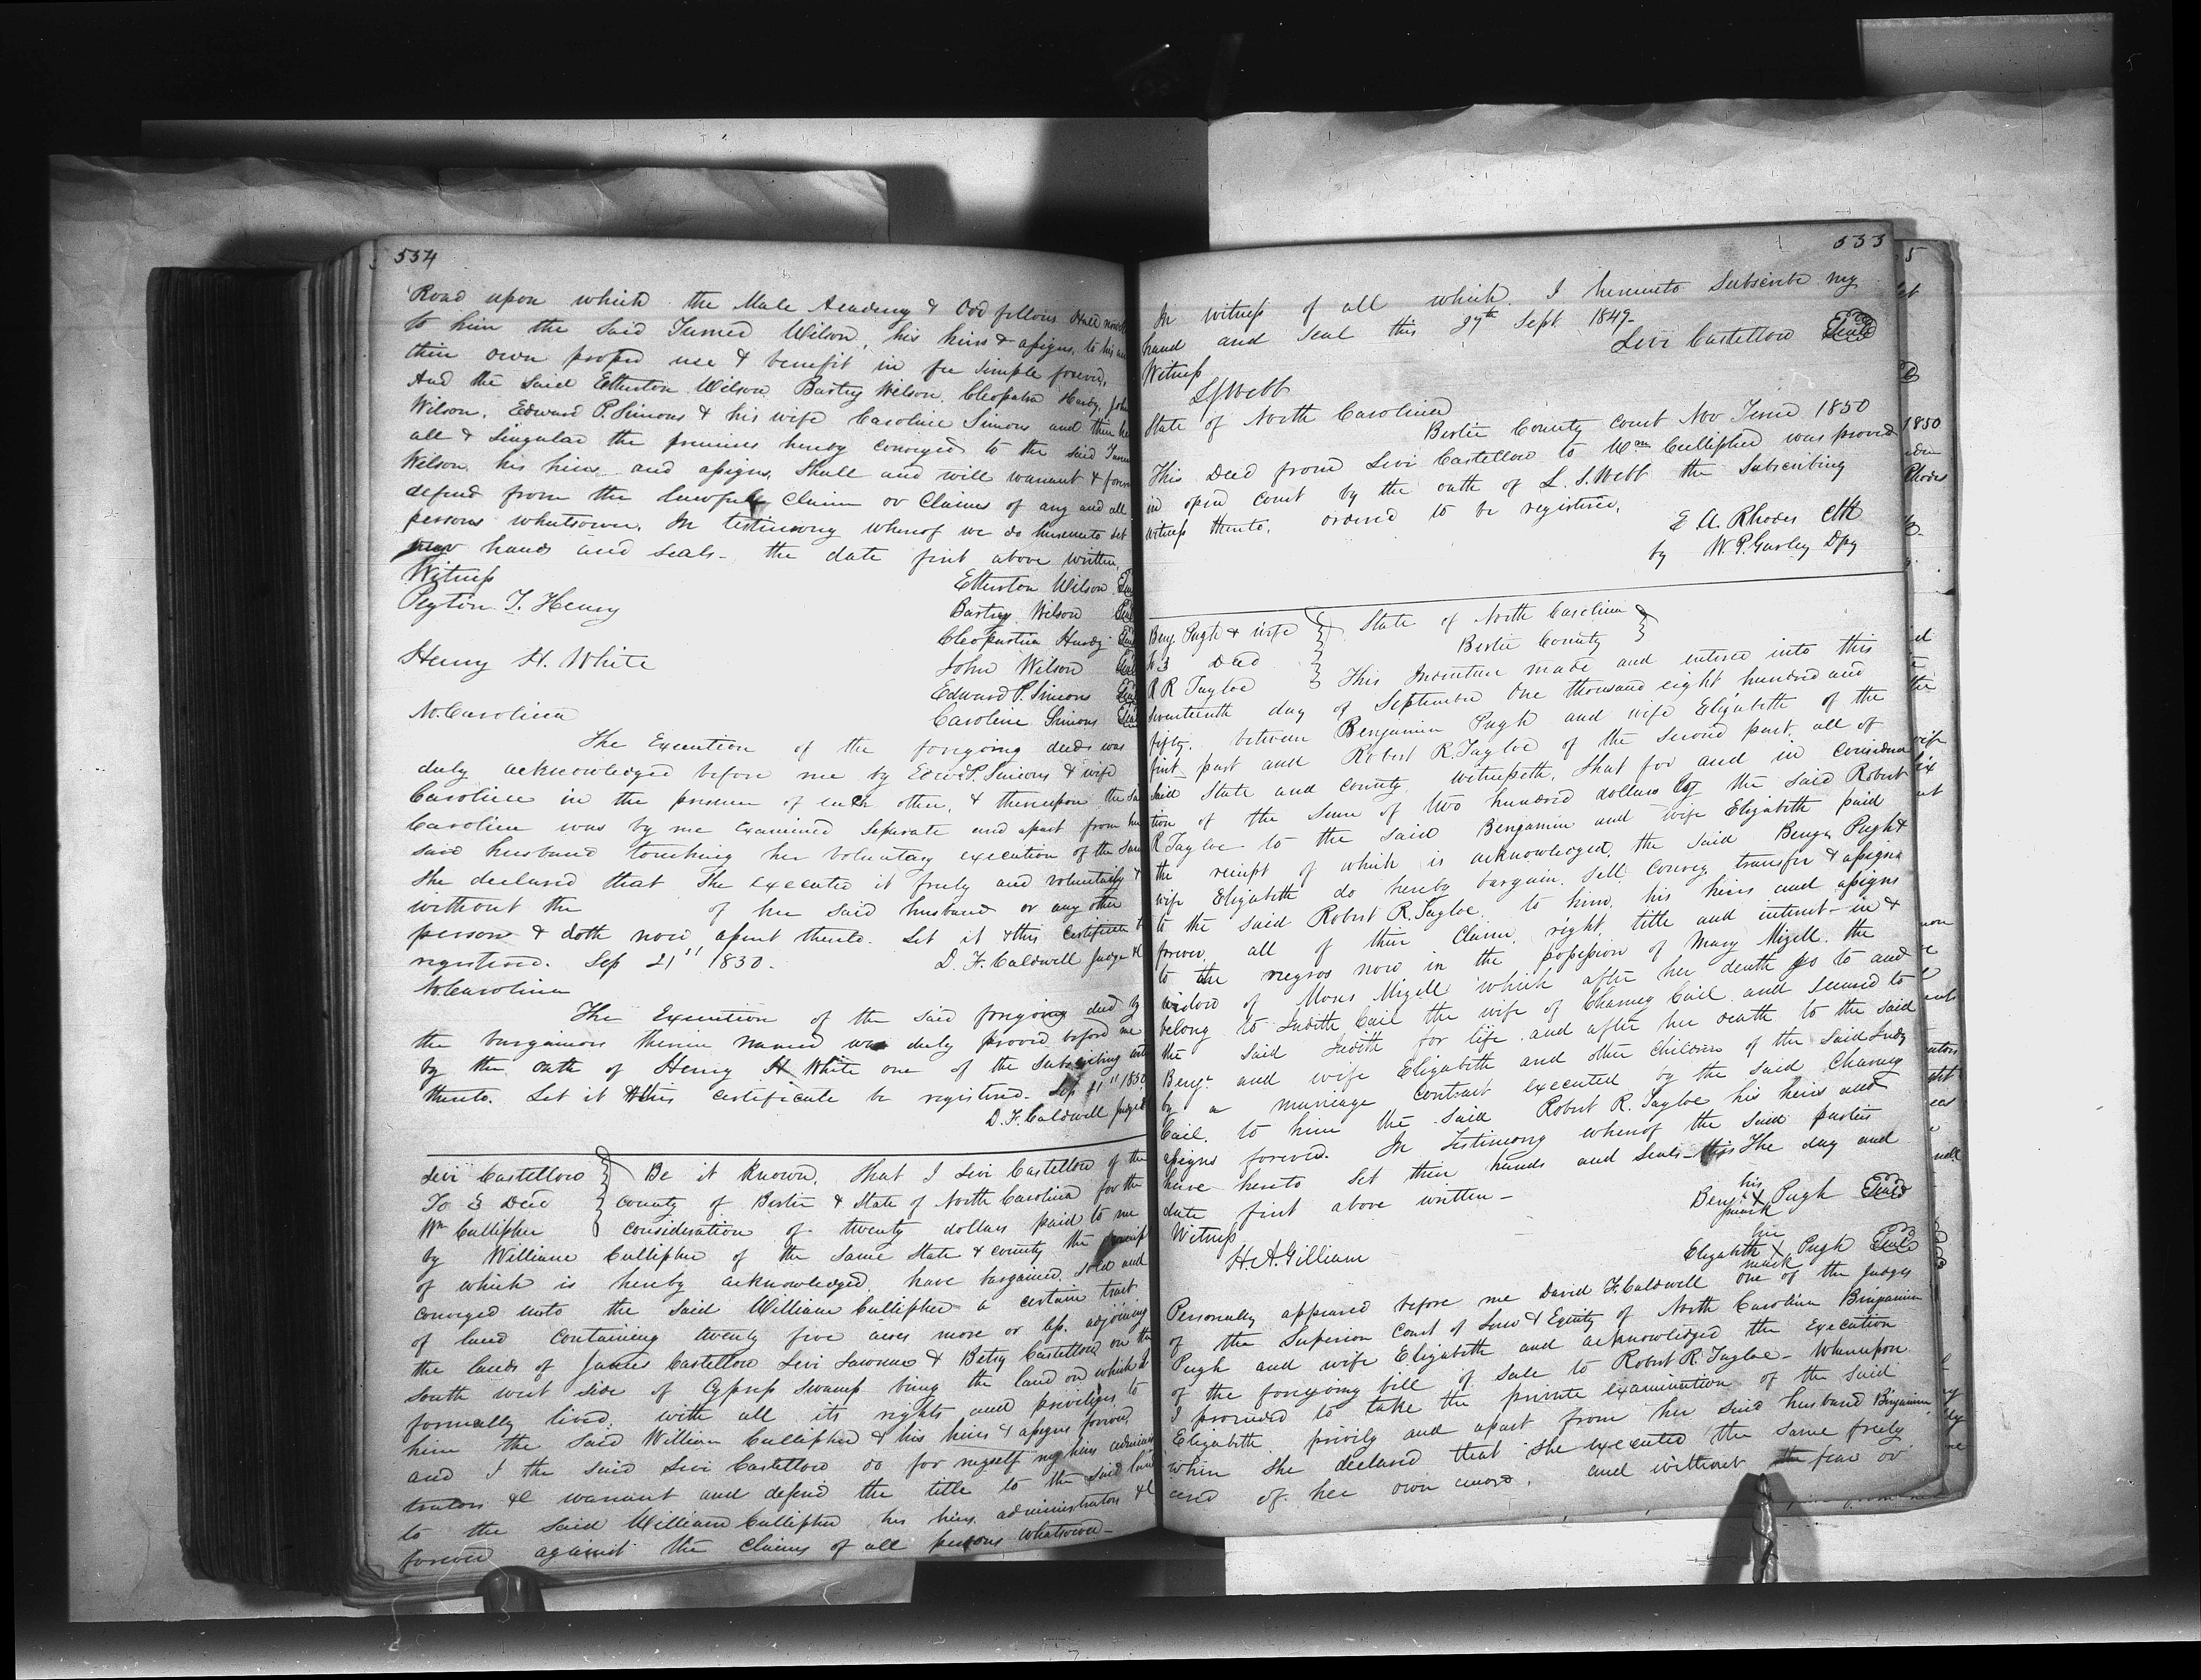 534
Road upon which the Male Academy & Odd fellows Hall now
to him the said Turner Wilson, his heirs & assigns, to his
their own proper use & benefit in fee simple forever,
And the said Etherton Wilson Bartry Wilson, Cleopatra Hardy, John
Wilson, Edward P. Simons & his wife Caroline Simons and their
all & singular the premises hereby conveyed to the said
Wilson his heirs and assigns, shall and will warrant &
defend from the lawfull claim or Claims of any and all
persons whatsoever. In testimony whereof we do hereunto set
our hands and seals - the date first above written,
Witness
Peyton T. Henry
Henry H. White
Etherton Wilson
Bartry Wilson
Cleopatria Hardy
John Wilson
Edward P. Simons
Caroline Simons
No. Carolina
The Execution of the foregoing deeds was
duly acknowledged before me by Edwd P. Simons & wife
Caroline in the presence of each other, & thereupon the
Caroline was by me examined separate and apart from her
said husband touching her voluntary execution of the same
she declared that she executed it freely and voluntarily &
without the of her said husband or any other
person & doth now assent thereto. Let it & this certificate
registered. Sep 21" 1850.
D. F. Caldwell Judge &c
No. Carolina
The Execution of the said foregoing deed by
the bargainors therein named was duly proved before me
by the oath of Henry H White one of the subscribing
thereto. Let it & this certificate be registered. Sep 21" 1850
D. F. Caldwell Judge
Levi Castellow } Be it known, that I Levi Castellow of the
To } Deed } County of Bertie & State of North Carolina for the
Wm Cullipher } consideration of twenty dollars paid to me
by William Cullipher of the same State & county the receipt
of which is hereby acknowledged, have bargained, sold and
conveyed unto the said William Cullipher a certain tract
of land containing twenty five acres more or less, adjoining
the lands of James Castellow Levi Lawrence & Betsy Castellow on the
south west side of Cypress swamp being the land on which
formally lived, with all its rights and priviliges, to
him the said William Cullipher & his heirs & assigns forever,
and I the said Levi Castellow do for myself my heirs
trators &c warrant and defend the title to the said land
to the said William Cullipher his heirs administrators &c
forever against the claims of all persons whatsoever -
533
In witness of all which I hereunto subscribe my
hand and seal this 27th Sept 1849-
Levi Castellow Seal
Witness
L S Webb
State of North Carolina
Bertie County Court Nov Term 1850
This Deed from Levi Castellow to Wm Cullipher was proved
in open court by the oath of L. S. Webb the subscribing
witness thereto, ordered to be registered,
E A. Rhodes Clk
by W. P. Gurley Dpy
Benj. Pugh & wife } State of North Carolina }
to } Deed } Bertie County }
R R Tayloe } This Indenture made and entered into this
Seventeenth day of September One thousand eight hundred and
fifty. between Benjamin Pugh and wife Elizabeth of the
first part and Robert R. Tayloe of the second part, all of
said State and County, witnesseth, that for and in considera
tion of the sum of two hundred dollars by the said Robert
R Tayloe to the said Benjamin and wife Elizabeth paid
the receipt of which is acknowledged, the said Benjn Pugh &
wife Elizabeth do hereby bargain. sell convey transfer & assign
to the said Robert R. Tayloe, to him, his heirs and assigns
forever all of their Claim, right, title and interest - in &
to the negros now in the possession of Mary Mizell. the
widow of Moses Mizell which after her death go to and
belong to Judith Cail the wife of Chamey Cail and secured to
the said Judith for life and after her death to the said
Benjn and wife Elizabeth and other children of the said Judy
by a marriage contract executed by the said Chamey
Cail. to him the said Robert R. Tayloe his heirs and
assigns forever. In Testimony whereof the said parties
have hereto set their hands and Seals- The day and
date first above written-
his
Benjn X Pugh Seal
mark
Witness
H. A. Gilliam
her
Elizabeth X Pugh Seal
mark
Personally appeared before me David F. Caldwell one of the Judges
of the Superior Court of Law & Equity of North Carolina Benjamin
Pugh and wife Elizabeth and acknowledged the execution
of the foregoing bill of sale to Robert R. Tayloe - Whereupon
I proceeded to take the private examination of the said
Elizabeth privily and apart from her said husband Benjamin
when she declared that she executed the same freely
and of her own accord, and without fear or
1850
Rhodes